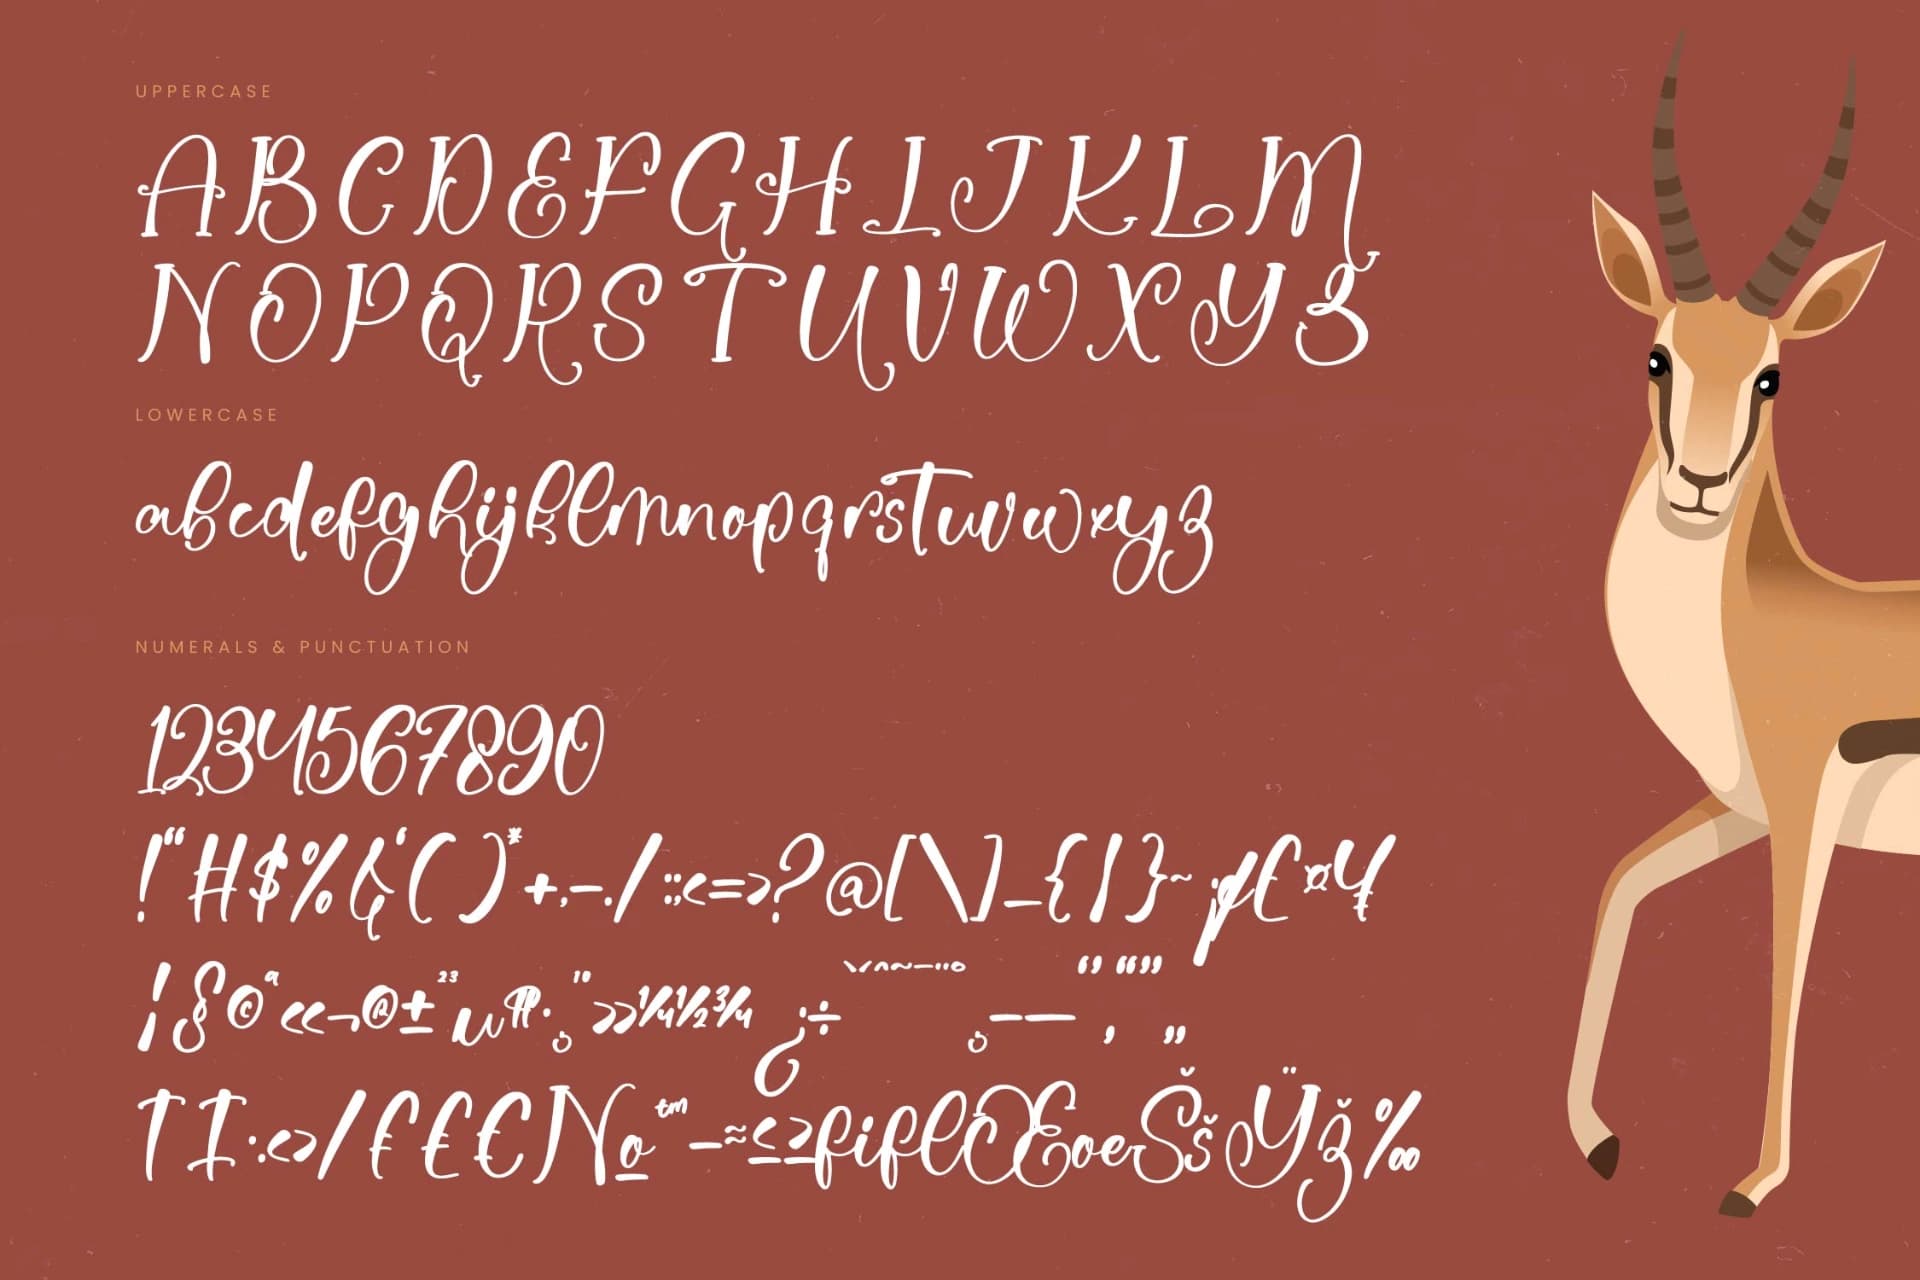 UPPERCASE
ABCDEFGHIJKLM
NOPQRSTUVWXYZ
LOWERCASE
abcdefghijklmnopqrstuvwxyz
NUMERALS & PUNCTUATION
1234567890
!"#$%&'()*+,-./:;<=>?@[\]_{|}~¡¢£¤¥
¦§©ª«¬®±²³µ¶·¸¹º»¼½¾¿÷ˆˇ˘˜¯˙¨˚¸–—‘’‚“”„
†‡:‹›⁄₣₤€№™−≈≤≥fiflŒœŠšŸž‰